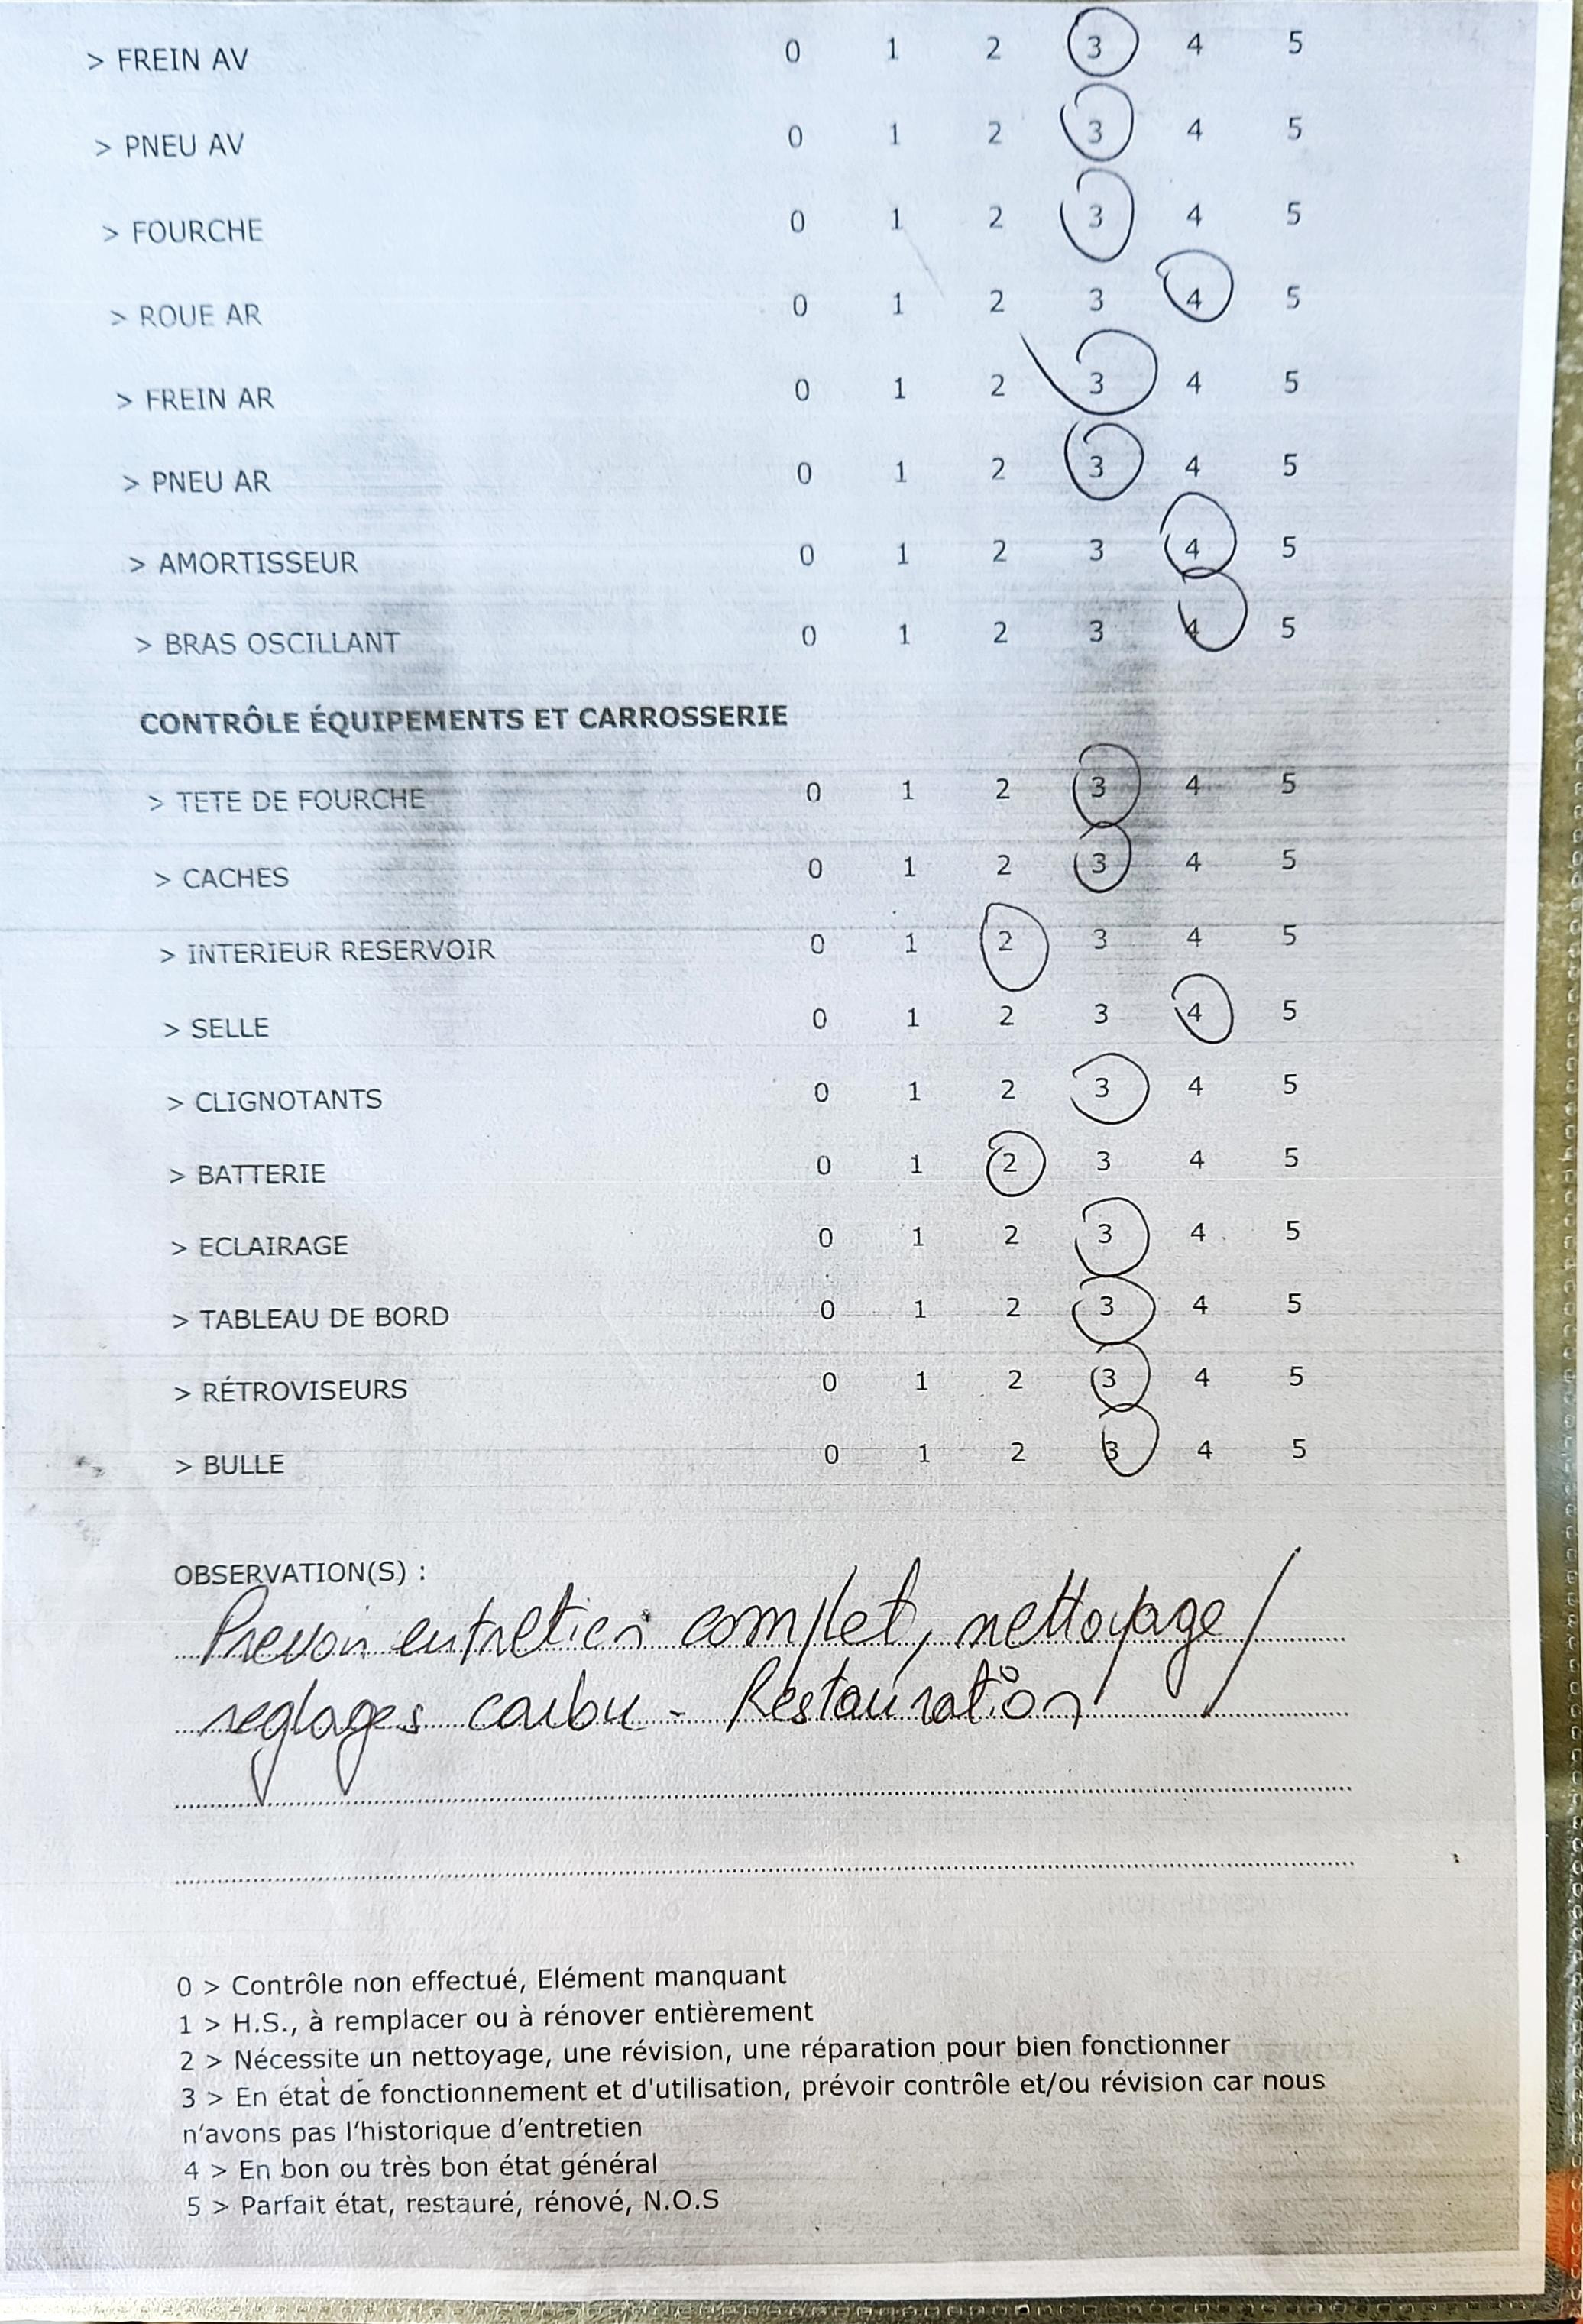 > FREIN AV 0 1 2 3 4 5
> PNEU AV 0 1 2 3 4 5
> FOURCHE 0 1 2 3 4 5
> ROUE AR 0 1 2 3 4 5
> FREIN AR 0 1 2 3 4 5
> PNEU AR 0 1 2 3 4 5
> AMORTISSEUR 0 1 2 3 4 5
> BRAS OSCILLANT 0 1 2 3 4 5
CONTRÔLE ÉQUIPEMENTS ET CARROSSERIE
> TETE DE FOURCHE 0 1 2 3 4 5
> CACHES 0 1 2 3 4 5
> INTERIEUR RESERVOIR 0 1 2 3 4 5
> SELLE 0 1 2 3 4 5
> CLIGNOTANTS 0 1 2 3 4 5
> BATTERIE 0 1 2 3 4 5
> ECLAIRAGE 0 1 2 3 4 5
> TABLEAU DE BORD 0 1 2 3 4 5
> RÉTROVISEURS 0 1 2 3 4 5
> BULLE 0 1 2 3 4 5
OBSERVATION(S) :
Prevoir entretien complet, nettoyage /
reglages carbu - Restauration
0 > Contrôle non effectué, Elément manquant
1 > H.S., à remplacer ou à rénover entièrement
2 > Nécessite un nettoyage, une révision, une réparation pour bien fonctionner
3 > En état de fonctionnement et d'utilisation, prévoir contrôle et/ou révision car nous
n'avons pas l'historique d'entretien
4 > En bon ou très bon état général
5 > Parfait état, restauré, rénové, N.O.S